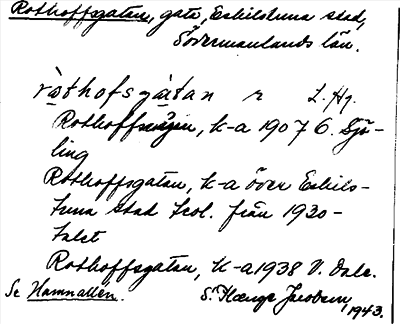 Rothoffsgatan, gata, Eskilstuna stad,
Södermanlands län.
ròthofsgàtan r L. Hg.
Rothoffsvägen, k-a 1907 G. Sjö-
ling
Rothoffsgatan, k-a över Eskils-
tuna stad kol. från 1930-
talet
Rothoffsgatan, k-a 1938 V. Dale.
Se Hamnallén. S. Hænge Jacobsen, 1943.